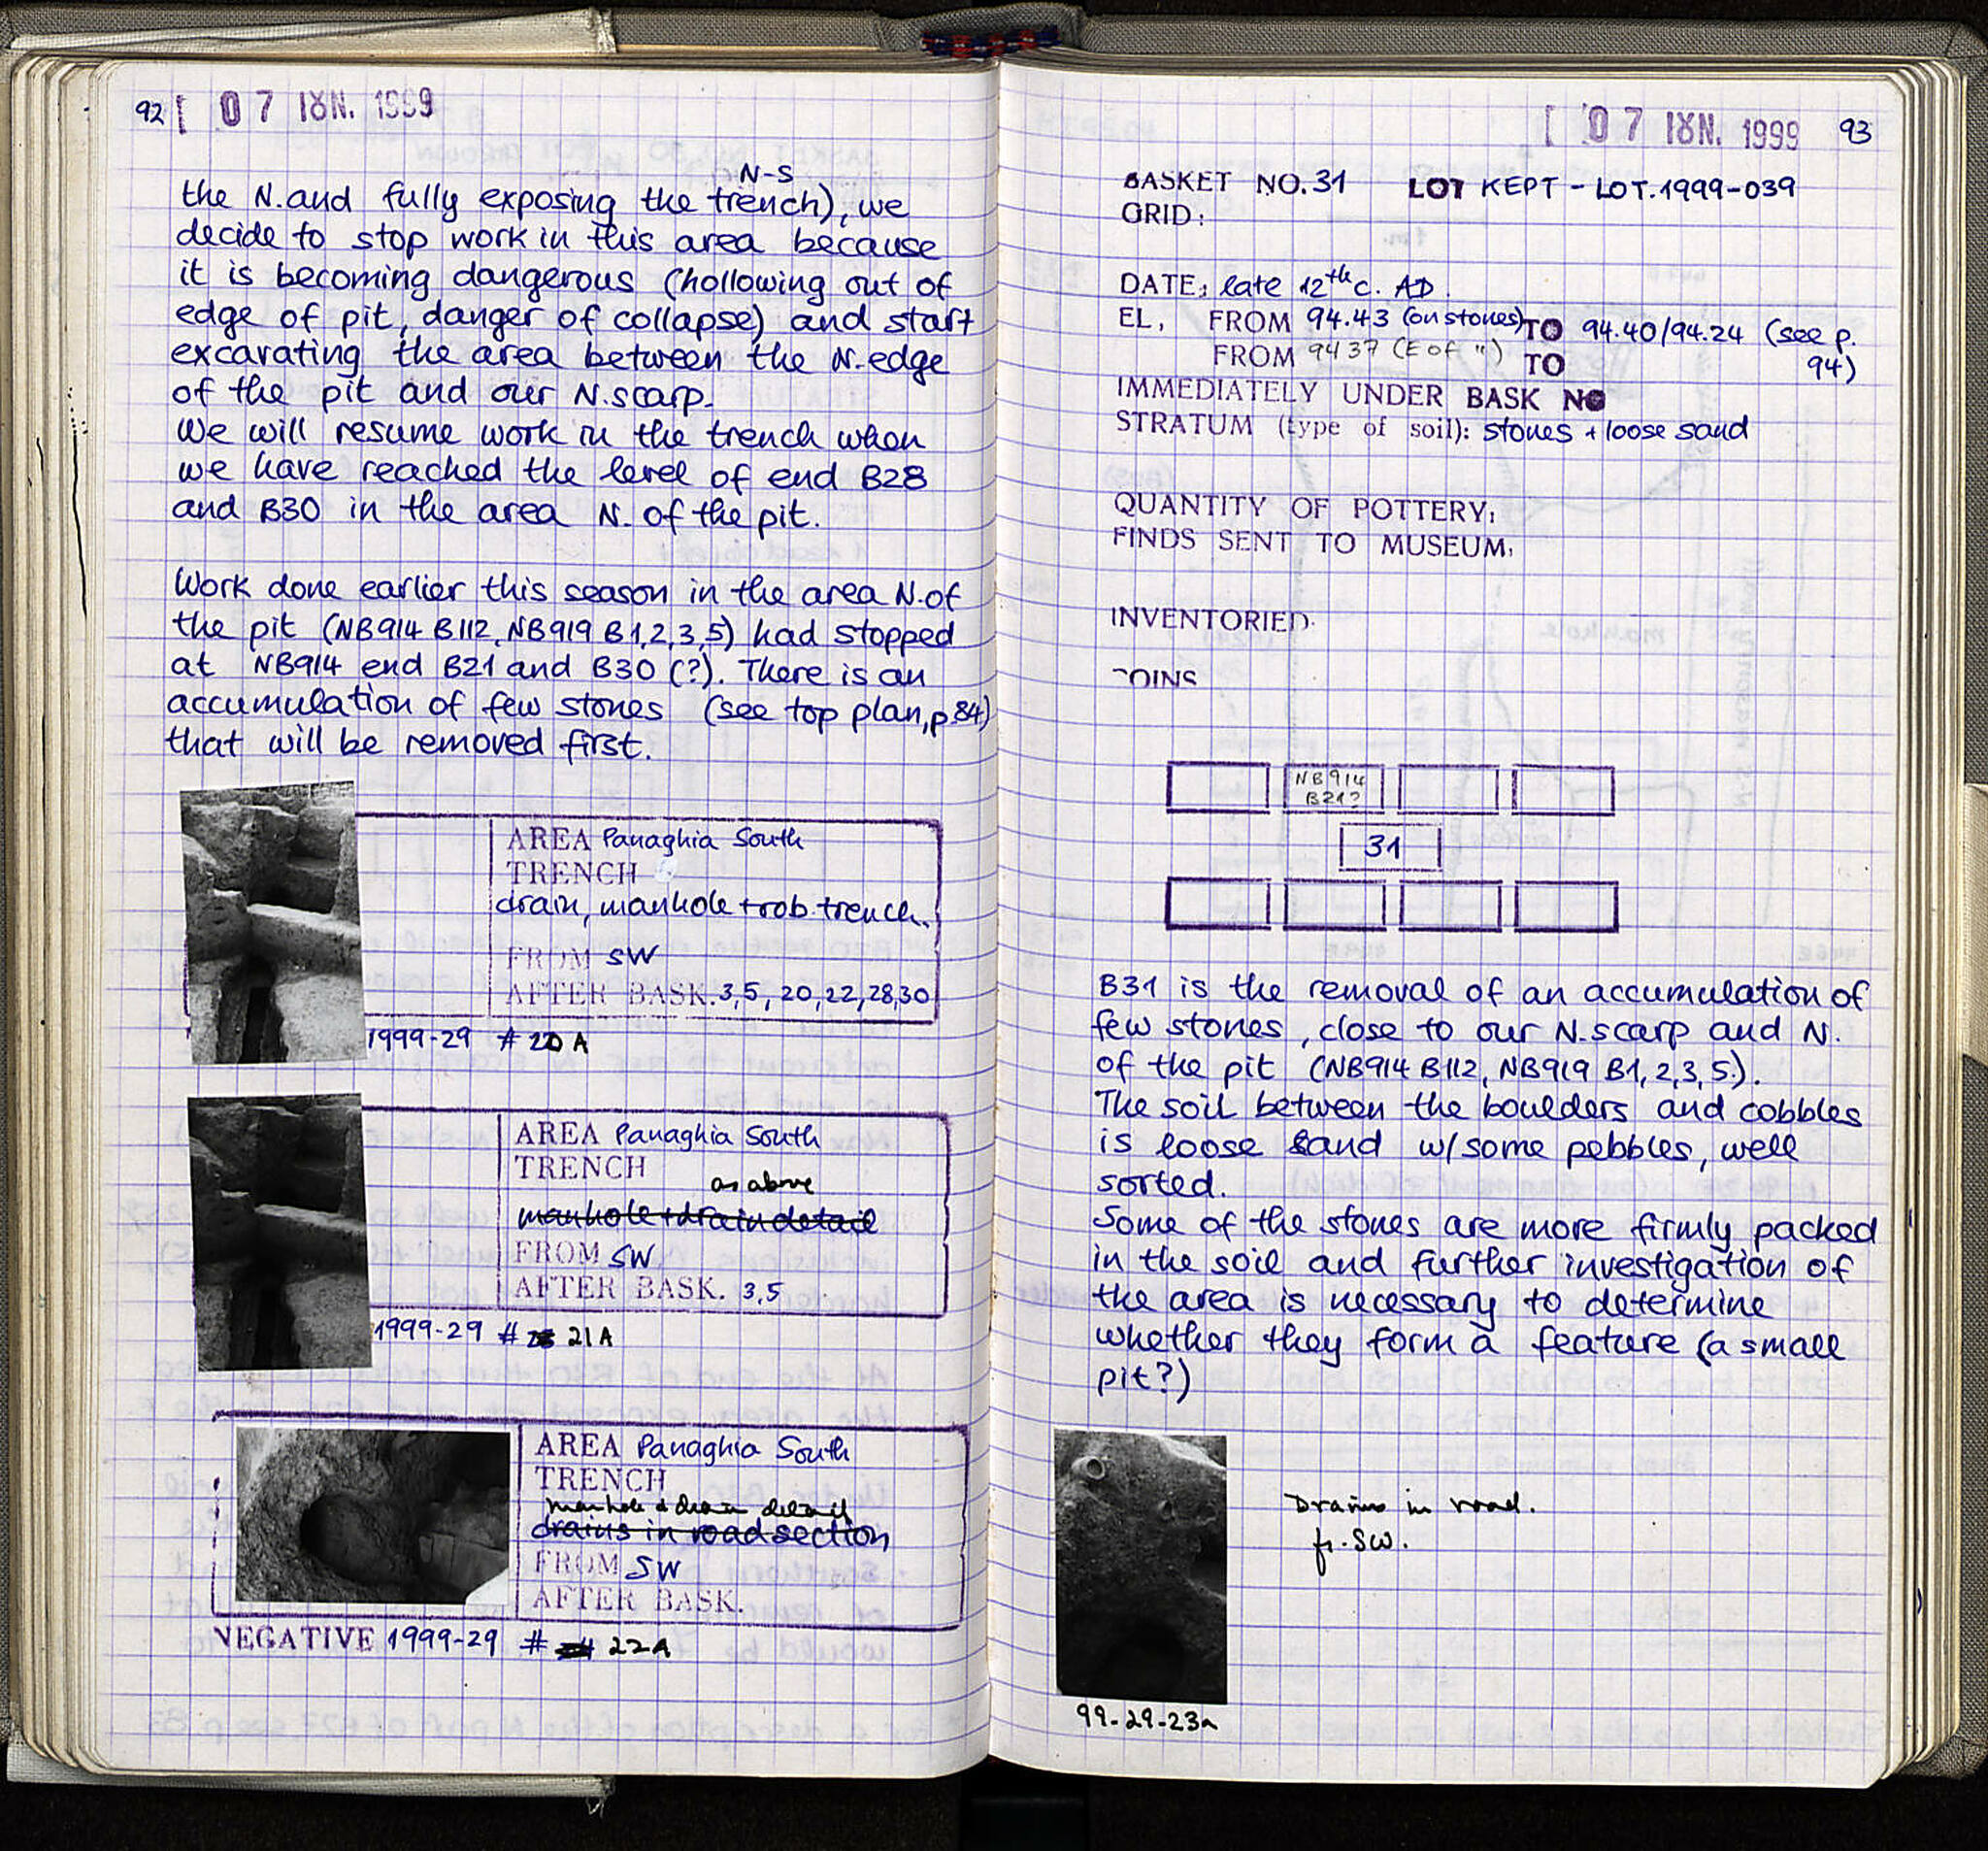 92 [ 07 ΙΟΥΝ. 1999
N-S
the N. and fully exposing the trench), we
decide to stop work in this area because
it is becoming dangerous (hollowing out of
edge of pit, danger of collapse) and start
excavating the area between the N. edge
of the pit and our N. scarp.
We will resume work in the trench when
we have reached the level of end B28
and B30 in the area N. of the pit.
Work done earlier this season in the area N. of
the pit (NB914 B112, NB919 B1,2,3,5) had stopped
at NB914 end B21 and B30 (?). There is an
accumulation of few stones (see top plan, p.84)
that will be removed first.
AREA Panaghia South
TRENCH
drain, manhole + rob. trench.
FROM SW
AFTER BASK. 3,5, 20, 22, 28, 30
1999-29 # 20 A
AREA Panaghia South
TRENCH
as above
manhole + drain detail
FROM SW
AFTER BASK. 3,5
1999-29 # 21 A
AREA Panaghia South
TRENCH
manhole & drain detail
drains in road section
FROM SW
AFTER BASK.
NEGATIVE 1999-29 # 22A
[ 07 ΙΟΥΝ. 1999 93
BASKET NO. 31 LOT KEPT - LOT. 1999-039
GRID:
DATE: late 12th c. AD.
EL, FROM 94.43 (on stones) TO 94.40/94.24 (see p.
FROM 94 37 (E of ") TO 94)
IMMEDIATELY UNDER BASK NO
STRATUM (type of soil): stones + loose sand
QUANTITY OF POTTERY:
FINDS SENT TO MUSEUM:
INVENTORIED:
COINS
NB914
B21?
31
B31 is the removal of an accumulation of
few stones, close to our N. scarp and N.
of the pit (NB914 B112, NB919 B1,2,3,5.).
The soil between the boulders and cobbles
is loose sand w/some pebbles, well
sorted.
Some of the stones are more firmly packed
in the soil and further investigation of
the area is necessary to determine
whether they form a feature (a small
pit?)
Drains in road.
fr. SW.
99-29-23a